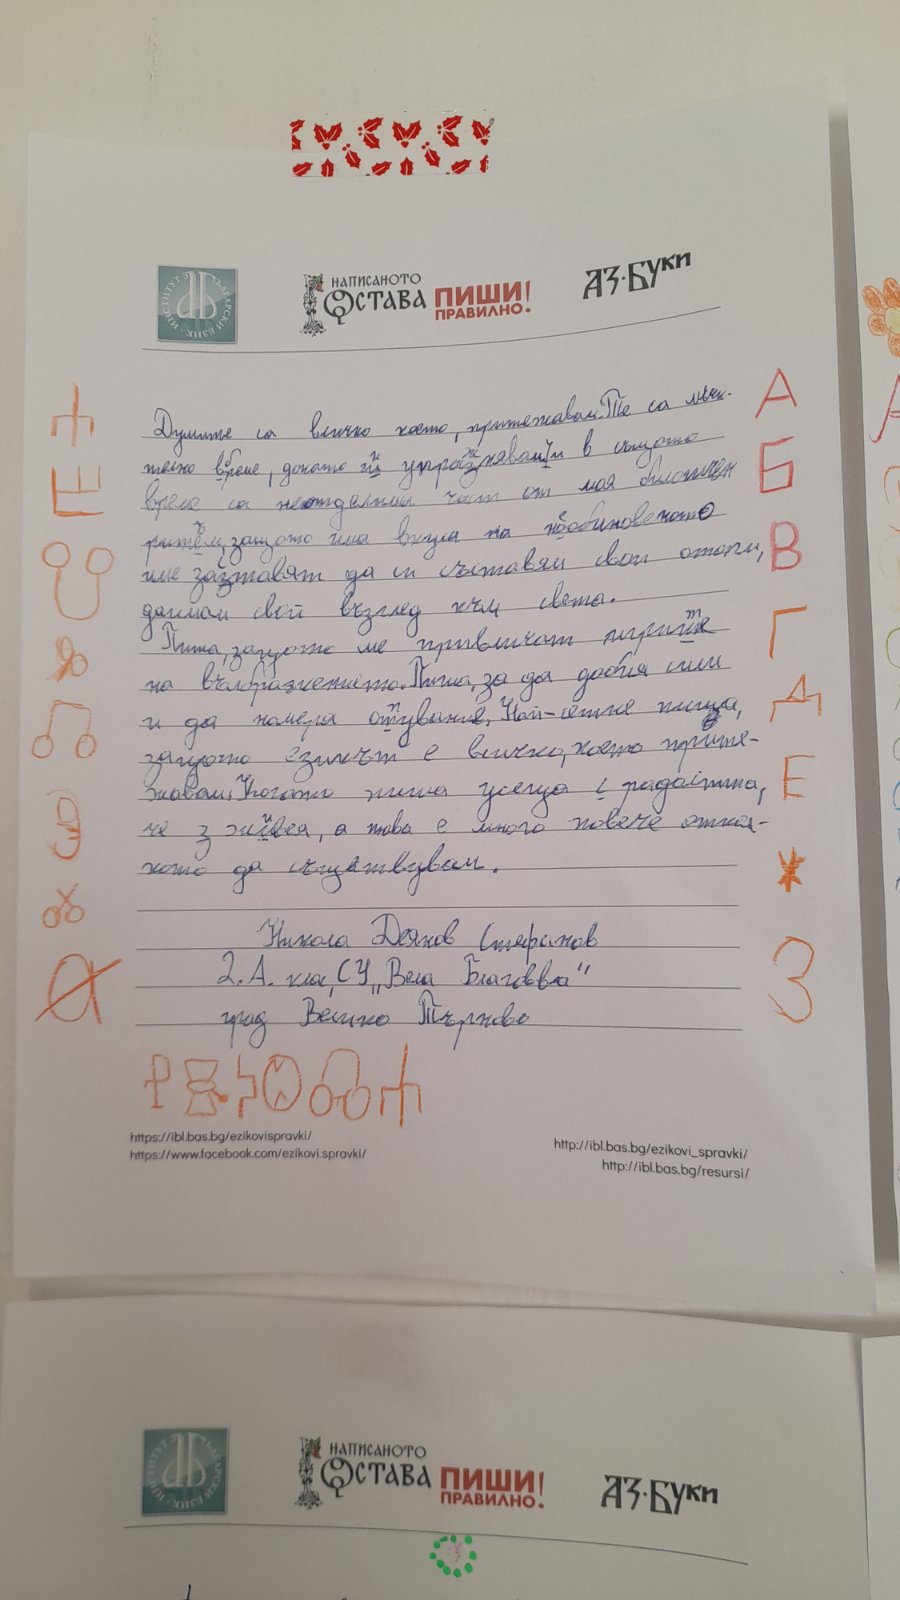 ИНСТИТУТ ЗА БЪЛГАРСКИ ЕЗИК
НАПИСАНОТО
ОСТАВА
ПИШИ!
ПРАВИЛНО.
АЗ·БУКИ
Думите са всичко което, притежавам. Те са мъчи-
телно време, докато ги упражнявам и в същото
време са неотделима част от моя биологичен
ритъм, защото има вкуса на необикновеното
ме заставят да си съставям свои
свой възглед към света.
Пиша, защото ме привличат игрите
на въображението. Пиша, за да добия сили
и да намеря Най-сетне пиша,
защото езикът е всичко, което прите-
жавам. Когато пиша усеща с радостта,
че з живея, а това е много повече откол-
кото да съществувам.
Никола Деянов Стефанов
2. А. кла, СУ „Вела Благоева"
град Велико Търново
А
Б
В
Г
Д
Е
Ж
З
https://ibl.bas.bg/ezikovispravki/
https://www.facebook.com/ezikovi.spravki/
http://ibl.bas.bg/ezikovi_spravki/
http://ibl.bas.bg/resursi/
НАПИСАНОТО
ОСТАВА
ПИШИ!
ПРАВИЛНО.
АЗ·БУКИ